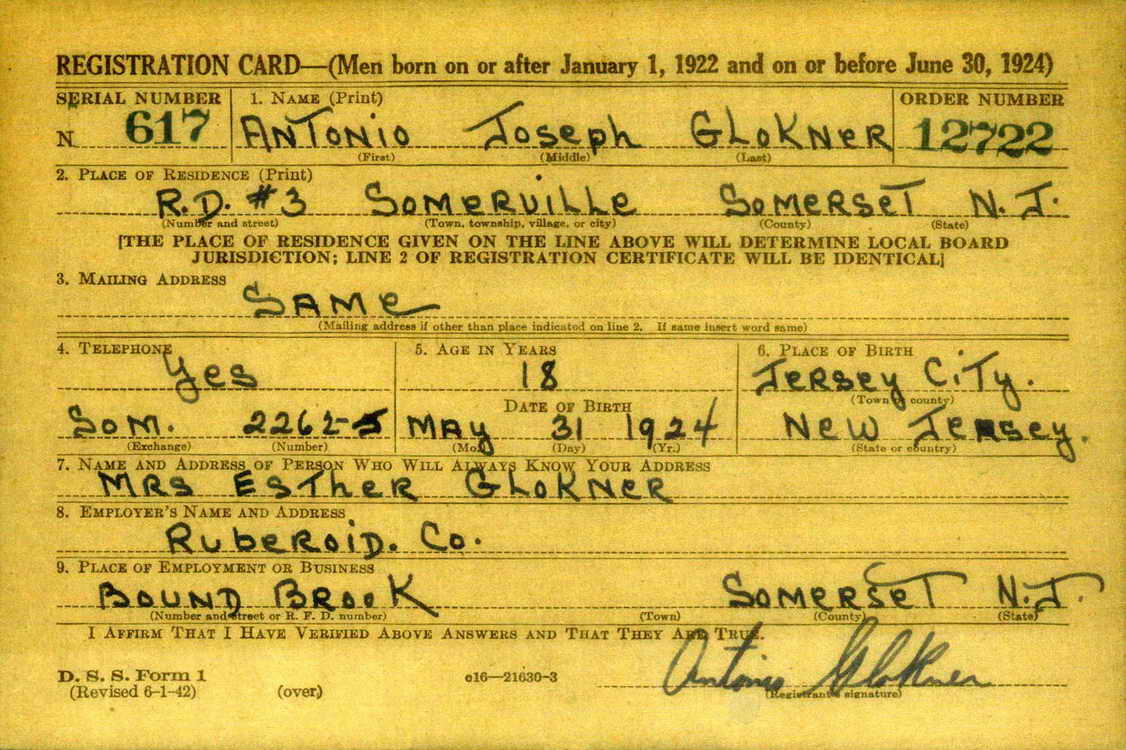 REGISTRATION CARD—(Men born on or after January 1, 1922 and on or before June 30, 1924)
SERIAL NUMBER 1. NAME (Print) ORDER NUMBER
N 617 ANTONIO JOSEPH GLOKNER 12722
(First) (Middle) (Last)
2. PLACE OF RESIDENCE (Print)
R.D. #3 SOMERVILLE SOMERSET N.J.
(Number and street) (Town, township, village, or city) (County) (State)
[THE PLACE OF RESIDENCE GIVEN ON THE LINE ABOVE WILL DETERMINE LOCAL BOARD
JURISDICTION; LINE 2 OF REGISTRATION CERTIFICATE WILL BE IDENTICAL]
3. MAILING ADDRESS
SAME
(Mailing address if other than place indicated on line 2. If same insert word same)
4. TELEPHONE 5. AGE IN YEARS 6. PLACE OF BIRTH
Yes 18 JERSEY CITY.
DATE OF BIRTH (Town or county)
SOM. 2262- MAY 31 1924 NEW JERSEY.
(Exchange) (Number) (Mo.) (Day) (Yr.) (State or country)
7. NAME AND ADDRESS OF PERSON WHO WILL ALWAYS KNOW YOUR ADDRESS
MRS ESTHER GLOKNER
8. EMPLOYER'S NAME AND ADDRESS
RUBEROID. CO.
9. PLACE OF EMPLOYMENT OR BUSINESS
BOUND BROOK SOMERSET N.J.
(Number and street or R. F. D. number) (Town) (County) (State)
I AFFIRM THAT I HAVE VERIFIED ABOVE ANSWERS AND THAT THEY ARE TRUE.
D. S. S. Form 1
(Revised 6-1-42) (over) c16—21630-3 Antonio Glokner
(Registrant's signature)